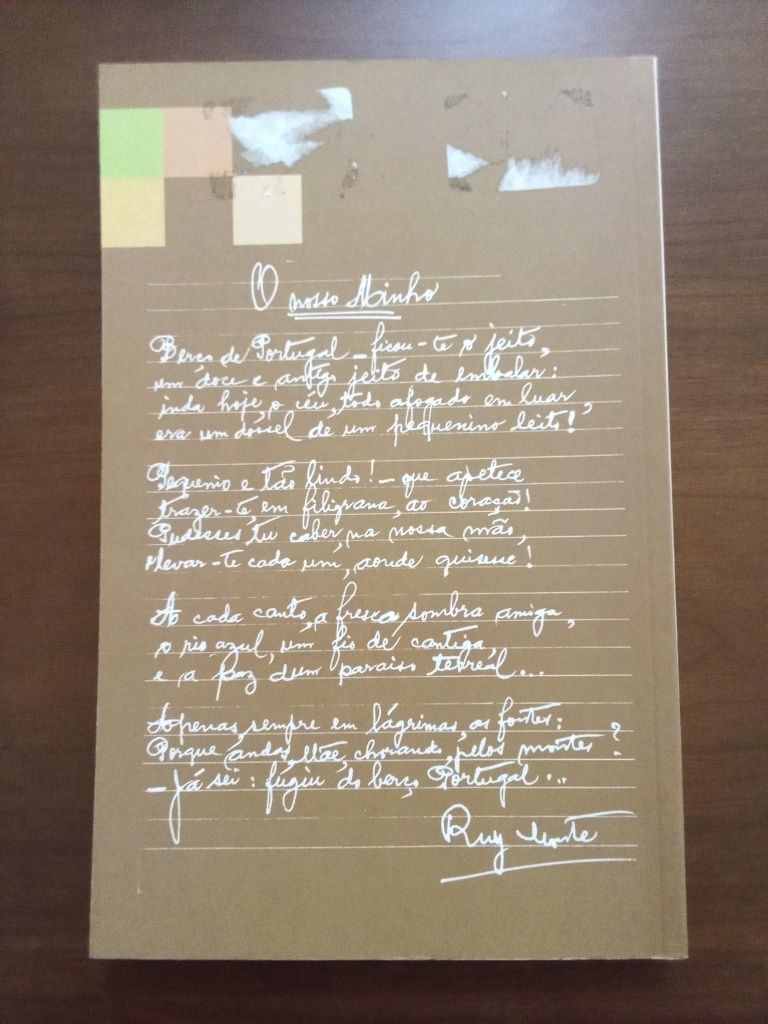 O nosso Minho
Berço de Portugal – ficou-te o jeito,
um doce e antigo jeito de embalar:
inda hoje, o céu, todo afogado em luar,
era um dossel de um pequenino leito!
Pequenio e tão lindo! – que apetece
trazer-te, em filigrana, ao coração!
Pudesses, tu caber, na nossa mão,
levar-te cada um, aonde quisesse!
A cada canto, a fresca sombra amiga,
o rio azul, um fio de cantiga,
e a paz dum paraiso terreal...
Apenas, sempre em lágrimas, as fontes:
Porque andas, Mãe, chorando, pelos montes?
– Já sei: fugiu do berço Portugal...
Ruy